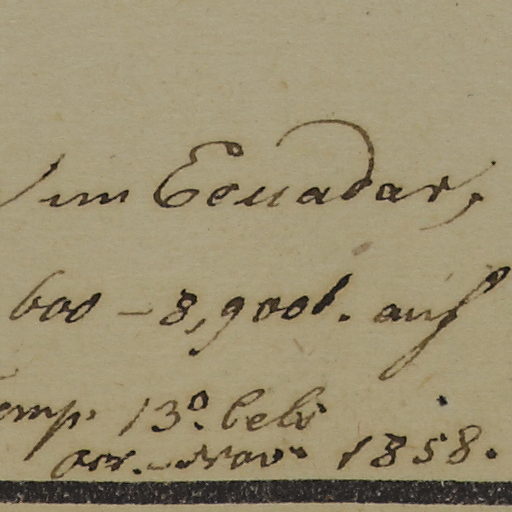 im Ecuador,
600 – 8,900'. auf
Temp. 13°. Cels
Oct. – Nov. 1858.